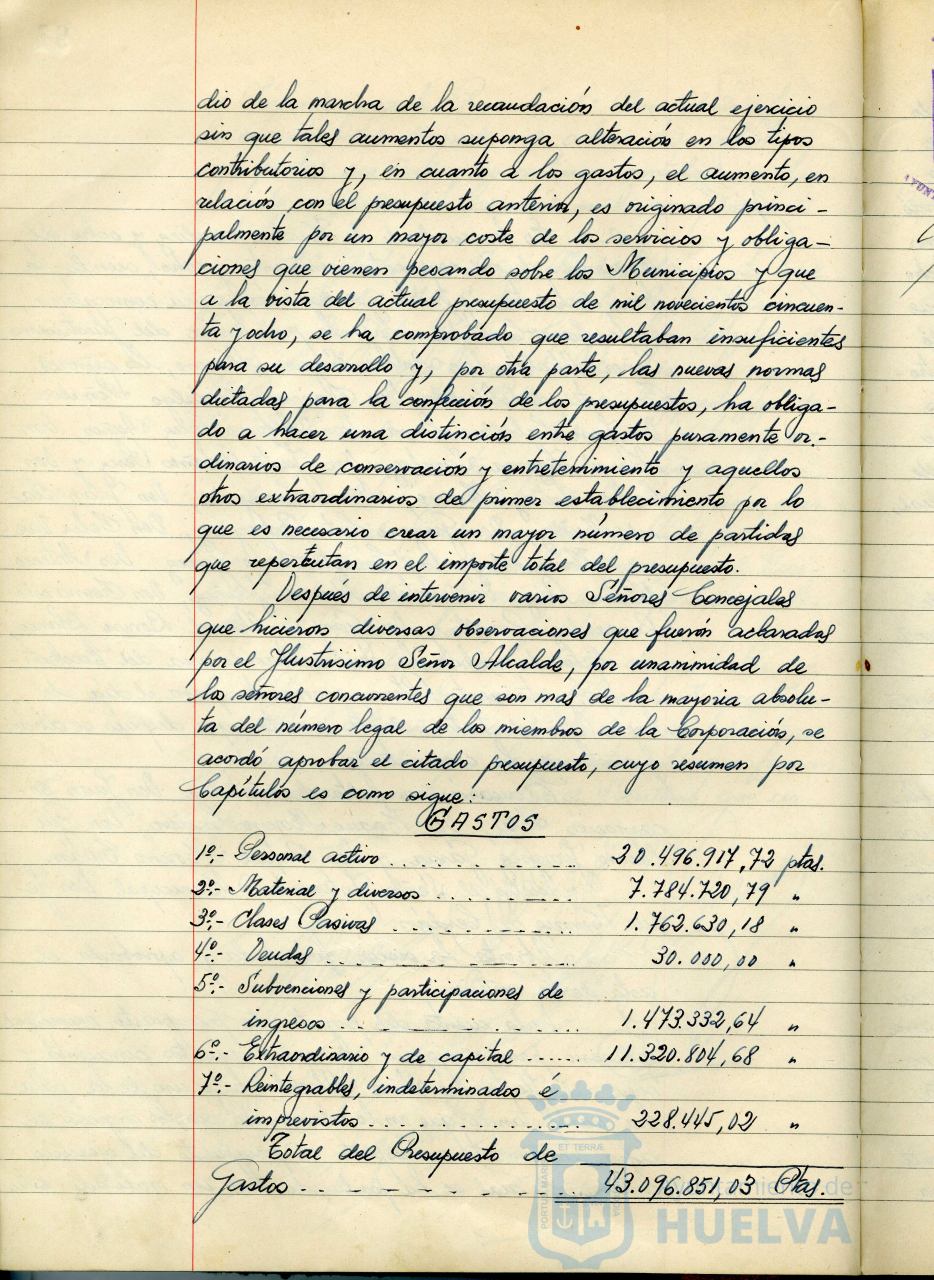 dio de la marcha de la recaudación del actual ejercicio
sin que tales aumentos suponga alteración en los tipos
contributorios y, en cuanto a los gastos, el aumento, en
relación con el presupuesto anterior, es originado princi-
palmente por un mayor coste de los servicios y obliga-
ciones que vienen pesando sobre los Municipios y que
a la vista del actual presupuesto de mil novecientos cincuen-
ta y ocho, se ha comprobado que resultaban insuficientes
para su desarrollo y, por otra parte, las nuevas normas
dictadas para la confección de los presupuestos, ha obliga-
do a hacer una distinción entre gastos puramente or-
dinarios de conservación y entretenimiento y aquellos
otros extraordinarios de primer establecimiento por lo
que es necesario crear un mayor número de partidas
que repercutan en el importe total del presupuesto.
Después de intervenir varios Señores Concejales
que hicieron diversas observaciones que fueron aclaradas
por el Ilustrisimo Señor Alcalde, por unanimidad de
los señores concurrentes que son mas de la mayoria absolu-
ta del número legal de los miembros de la Corporación, se
acordó aprobar el citado presupuesto, cuyo resumen por
Capítulos es como sigue:
GASTOS
1º.- Personal activo . . . . . . . . . . . 20.496.917,72 ptas.
2º.- Material y diversos . . . . . . . . 7.784.720,79 "
3º.- Clases Pasivas . . . . . . . . . . . 1.762.630,18 "
4º.- Deudas . . . . . . . . . . . 30.000,00 "
5º.- Subvenciones y participaciones de
ingresos . . . . . . . . . . . 1.473.332,64 "
6º.- Extraordinario y de capital . . . . . . 11.320.804,68 "
7º.- Reintegrables, indeterminados é
imprevistos . . . . . . . . . . . 228.445,02 "
Total del Presupuesto de
Gastos . . . . . . . . . 43.096.851,03 Ptas.
Ayuntamiento de
HUELVA